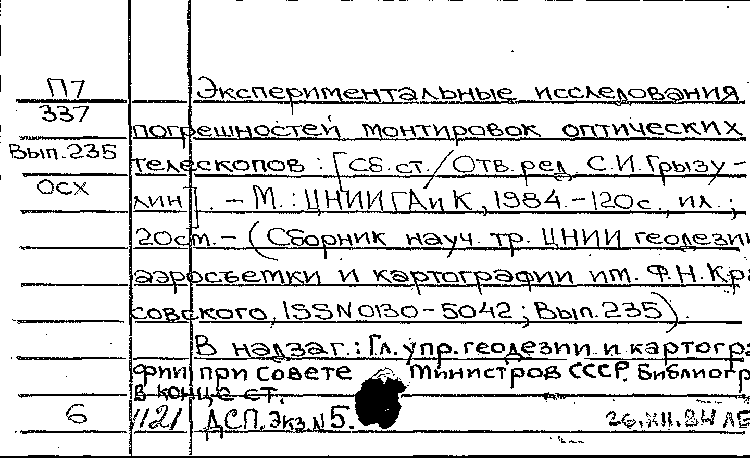 П7 Экспериментальные исследования
337
погрешностей монтировок оптических
Вып.235
телескопов : [Сб.ст./Отв.ред. С.И.Грызу-
ОСХ
лин]. - М.: ЦНИИГАиК, 1984.-120с., ил.;
20см.- (Сборник науч. тр. ЦНИИ геодезии
аэросъемки и картографии им. Ф.Н.Кра
совского, ISSN 0130-5042; Вып.235).
В надзаг.: Гл. упр. геодезии и картогра
фии при Совете Министров СССР. Библиогр
в конце ст.
6 1121 ДСП. Экз.N5. 26.XII.84